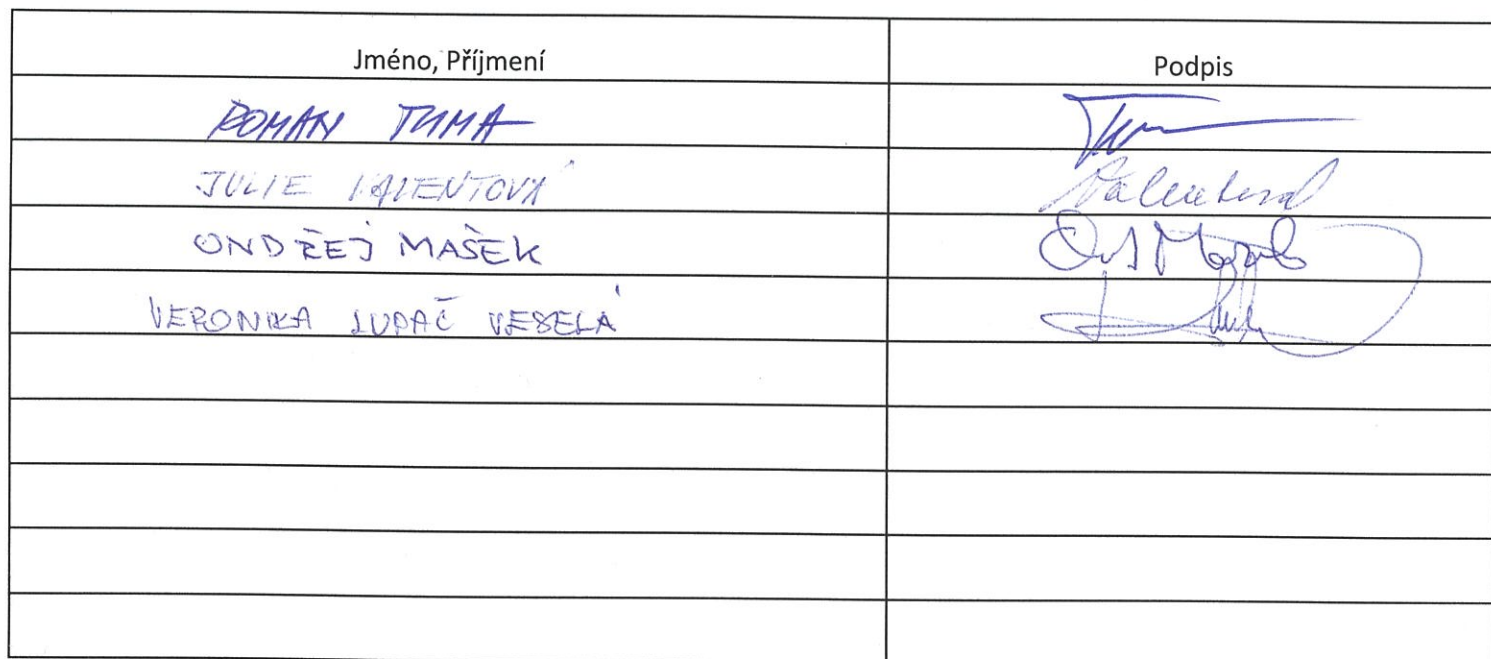 Jméno, Příjmení Podpis
ROMAN TUMA
JULIE VALENTOVÁ Valentová
ONDŘEJ MAŠEK
VERONIKA LUPAČ VESELÁ